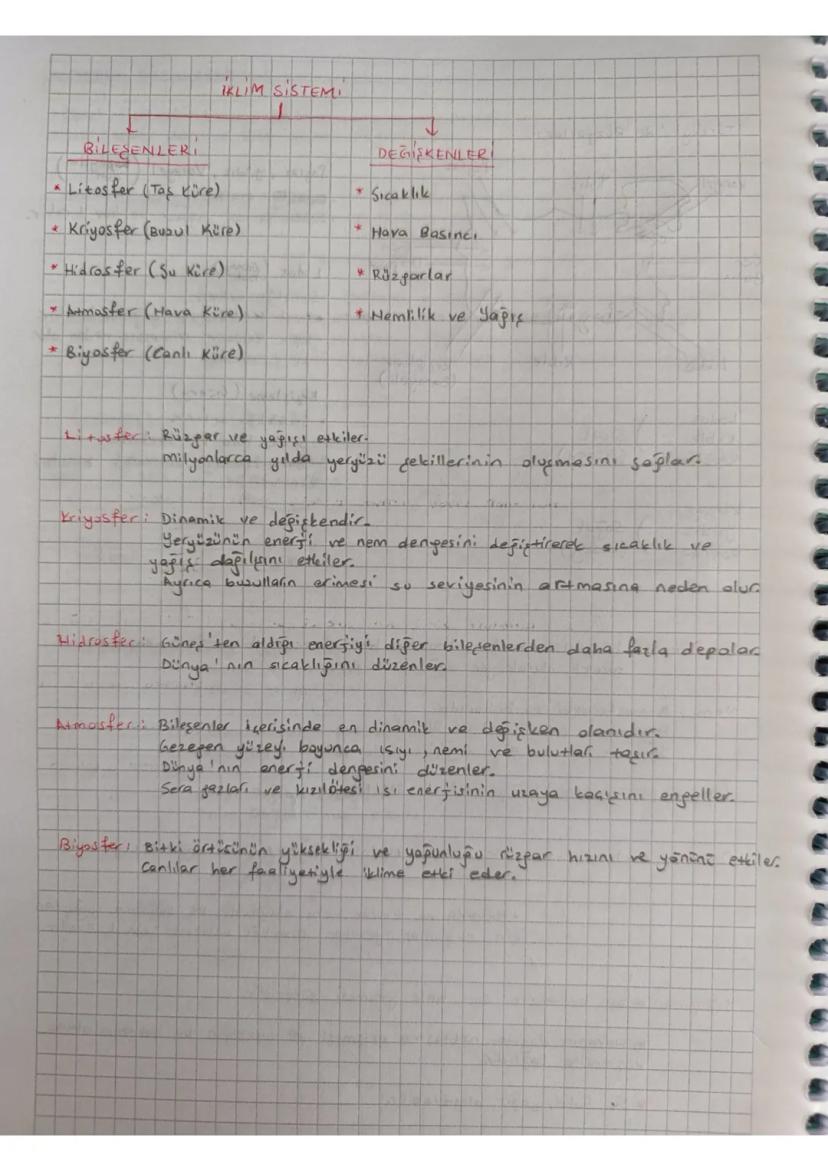 İKLİM SİSTEMİ
BİLEŞENLERİ
DEĞİŞKENLERİ
* Litosfer (Taş Küre)
* Kriyosfer (Buzul Küre)
* Hidrosfer (Su Küre)
* Atmosfer (Hava Küre)
* Biyosfer (Canlı Küre)
* Sıcaklık
* Hava Basıncı
* Rüzgarlar
* Nemlilik ve Yağış
Litosfer: Rüzgar ve yağışı etkiler.
Milyonlarca yılda yeryüzü şekillerinin oluşmasını sağlar.
Kriyosfer: Dinamik ve değişkendir.
Yeryüzünün enerji ve nem dengesini değiştirerek sıcaklık ve
yağış dağılışını etkiler.
Ayrıca buzulların erimesi su seviyesinin artmasına neden olur
Hidrosfer: Güneş'ten aldığı enerjiyi diğer bileşenlerden daha fazla depolar
Dünya'nın sıcaklığını düzenler.
Atmosfer: Bileşenler içerisinde en dinamik ve değişken olanıdır.
Gezegen yüzeyi boyunca ısıyı, nemi ve bulutları taşır.
Dünya'nın enerji dengesini düzenler.
Sera gazları ve kızılötesi ısı enerjisinin uzaya kaçışını engeller.
Biyosfer: Bitki örtüsünün yüksekliği ve yoğunluğu rüzgar hızını ve yönünü etkiler.
Canlılar her faaliyetiyle iklime etki eder.